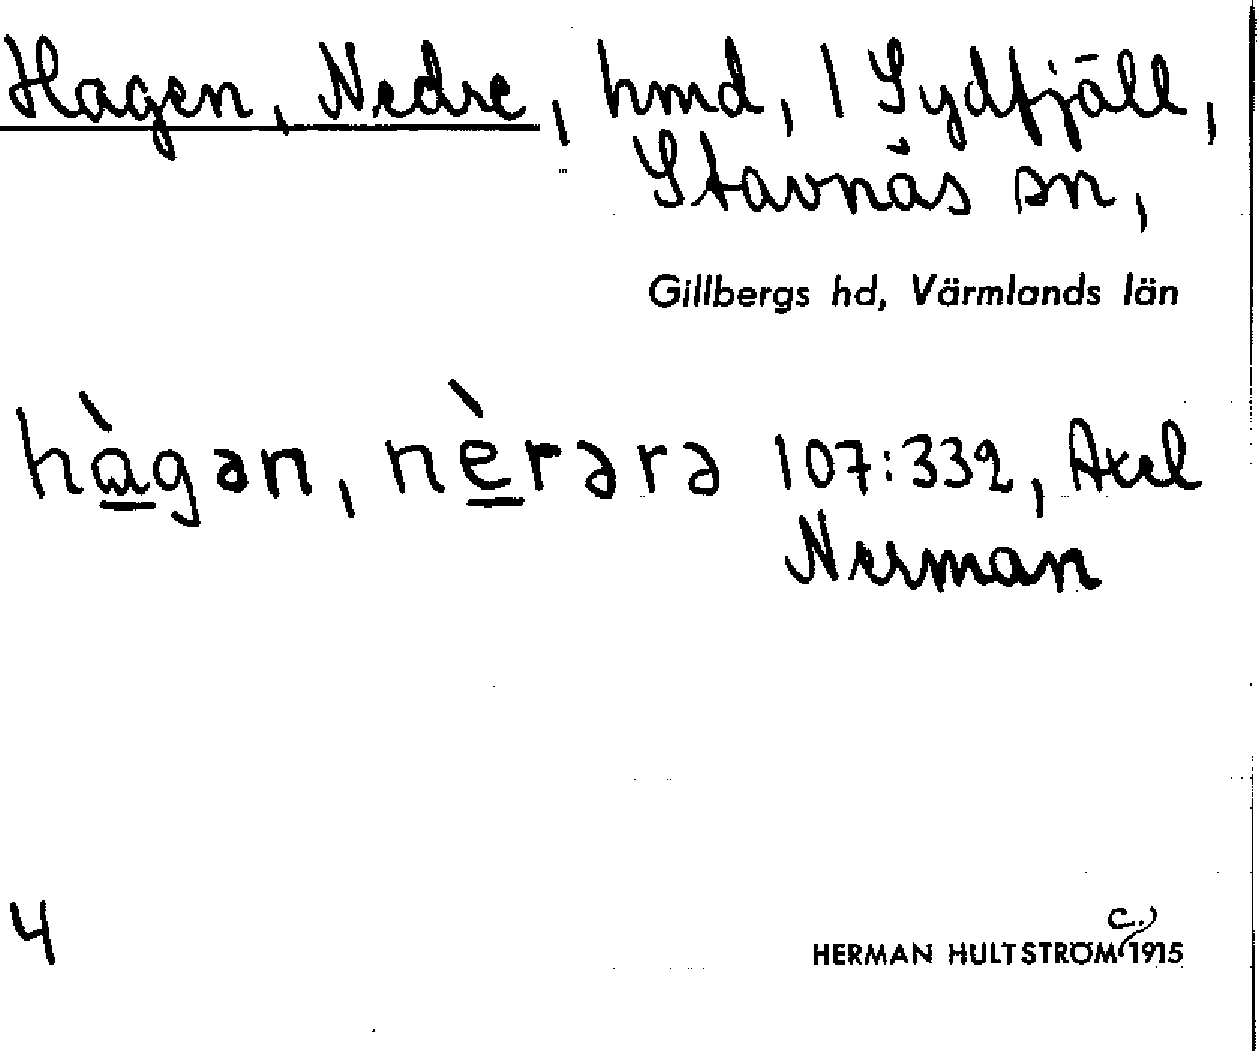 Hagen, Nedre, hmd, 1 Sydfjäll,
Stavnäs sn,
Gillbergs hd, Värmlands län
hà̲gən, nè̲rərə 107:332, Axel
Nerman
4
c.)
HERMAN HULTSTRÖM 1915